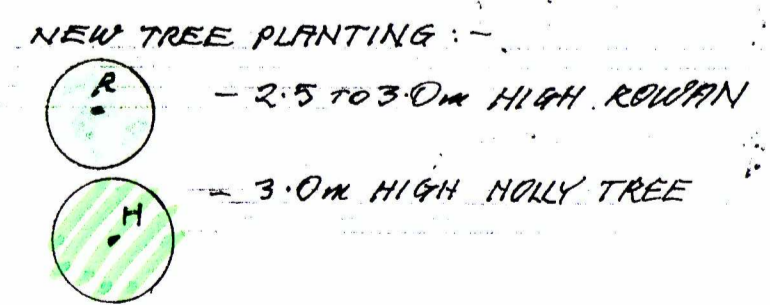 NEW TREE PLANTING :-
R
- 2.5 TO 3.0m HIGH ROWAN
H
- 3.0m HIGH HOLLY TREE